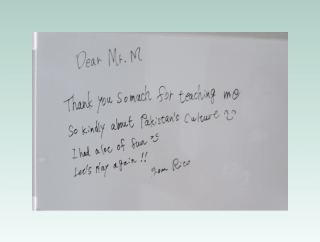 Dear Mr. M
Thank you so much for teaching me
So kindly about Pakistan's Culture
I had a lot of fun
Let's play again !!
from Rico